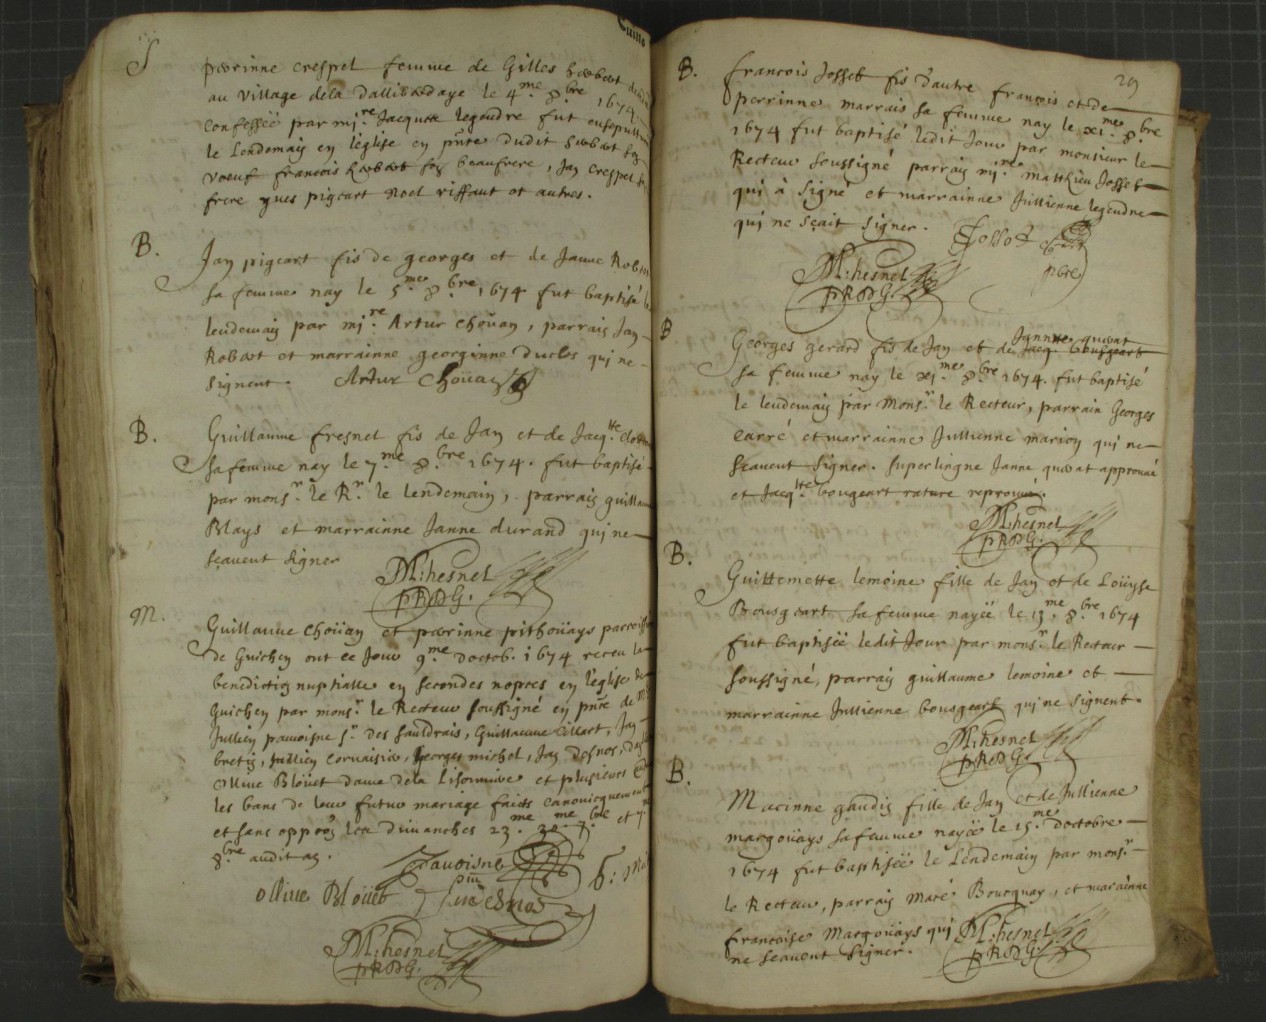 S
perrinne crespel femme de Gilles
au village dela Dallibardaye le 4.me 8bre 1674
confessée par mi.re Jacques legendre fut ensepult
le Lendemain en leglise en pnte dudit
francois beaufrere, Jan crespel
frere yves pigeart Noel riffaut et autres.
B.
Jan pigeart fis de georges et de Janne Rob
sa femme nay le 5.me 8bre 1674 fut baptisé l
lendemain par mi.re Artur Choüan, parrain Jan
Robert et marrainne georginne duclos qui ne
signent. Artur Choüan
B.
Guillaume fresnel fis de Jan et de Jacq.tte
sa femme nay le 7.me 8bre 1674. fut baptisé
par mons.r le R.r le lendemain, parrain guillau
Blays et marrainne Janne durand qui ne
sçavent signer
M: hesnel
pRDG.
M.
Guillaume Choüan et perrinne pithoüays parroiss
de Guichen ont ce Jour 9.me doctob. 1674 receu la
benediction nuptialle en secondes nopces en l'eglise de
Guichen par mons.r le Recteur soussigné en pnce de
Jullien s.r des sauldrais, Guillaume Jan
bretin, Jullien corvaisier, georges michel, Jan desnos,
Ollive Bloüet dame dela et plusieurs
les bans de leur futur mariage faicts canonicquement
et sans oppo.on les dimanches 23.me 30.me 7.bre et 7.
8.bre audit an.
Ollive Bloüet
M: hesnel
pRDG.
29
B.
francois Josset fis d'autre francois et de
perrinne marrais sa femme nay le xi.me 8bre
1674 fut baptisé ledit Jour par monsieur le
Recteur soussigné parrain mi.re Matthieu Josset
qui à signé et marrainne Jullienne legendre
qui ne sçait signer. Josset
pbre
M: hesnel
pRDG
B
Georges gerard fis de Jan et de Jacq. bougeart Jannne querat
sa femme nay le xi.me 8bre 1674. fut baptisé
le lendemain par Mons.r le Recteur, parrain Georges
carré et marrainne Jullienne marion qui ne
seavent signer. superlingne Janne querat approuvé
et Jacq.tte bougeart rature reprouvé.
M: hesnel
pRDG.
B.
Guillemette lemoine fille de Jan et de Loüyse
Bousgeart sa femme nayée le 13.me 8bre 1674
fut baptisée ledit Jour par mons.r le Recteur
soussigné, parrain guillaume lemoine et
marrainne Jullienne bousgeart qui ne signent.
M: hesnel
pRDG.
B.
Macinne gaudin fille de Jan et de Jullienne
margoüays sa femme nayée le 15.me doctobre
1674 fut baptisée le Lendemain par mons.r
le Recteur, parrain Macé Boucquay, et marainne
francoise Margoüays qui
ne seavent signer.
M: hesnel
pRDG.